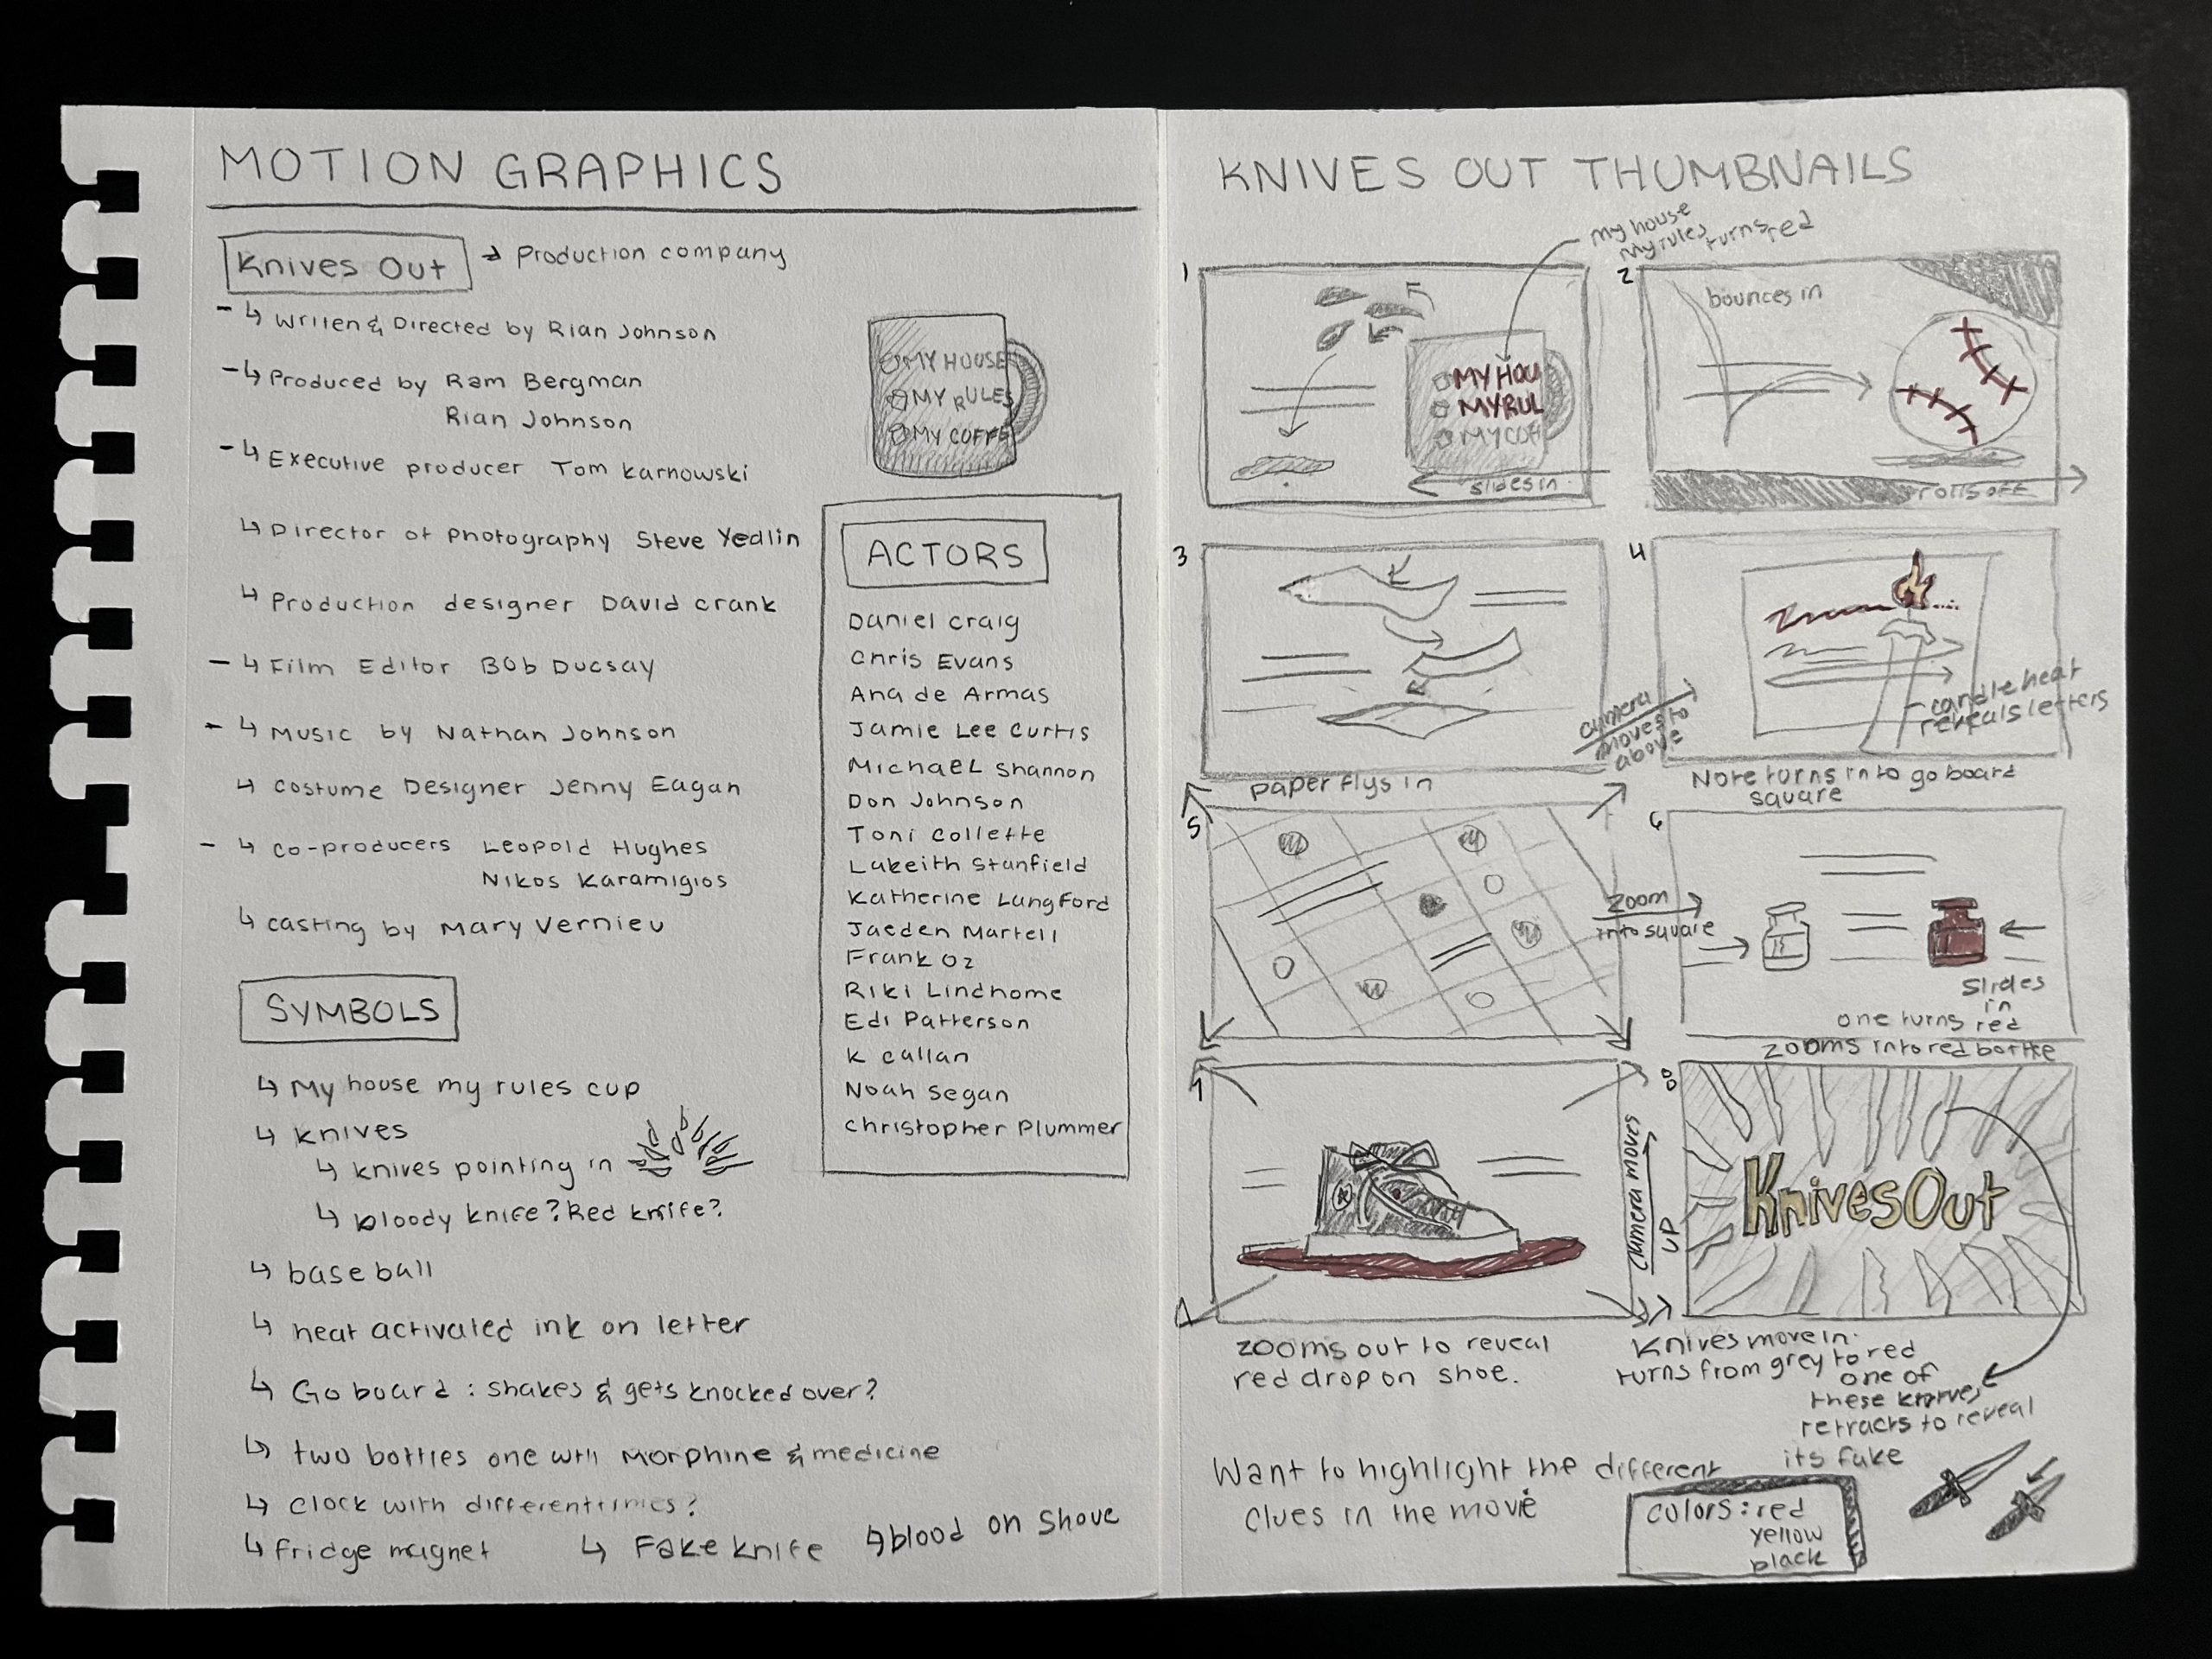 MOTION GRAPHICS
Knives Out → Production company
↳ Writen & Directed by Rian Johnson
↳ Produced by Ram Bergman
Rian Johnson
↳ Executive producer Tom Karnowski
↳ Director of Photography Steve Yedlin
↳ Production designer David crank
↳ Film Editor Bob Ducsay
↳ Music by Nathan Johnson
↳ Costume Designer Jenny Eagan
↳ Co-producers Leopold Hughes
Nikos Karamigios
↳ casting by Mary Vernieu
MY HOUSE
MY RULES
MY COFFE
ACTORS
Daniel Craig
Chris Evans
Ana de Armas
Jamie Lee Curtis
Michael Shannon
Don Johnson
Toni Collette
Lakeith Stanfield
Katherine Langford
Jaeden Martell
Frank Oz
Riki Lindhome
Edi Patterson
K callan
Noah Segan
Christopher Plummer
SYMBOLS
↳ My house my rules cup
↳ knives
↳ knives pointing in
↳ bloody knife? Red knife?
↳ baseball
↳ heat activated ink on letter
↳ Go board : shakes & gets knocked over?
↳ two bottles one with Morphine & medicine
↳ Clock with different times?
↳ fridge magnet ↳ Fake knife ↳ blood on shove
KNIVES OUT THUMBNAILS
my house
my rules turns red
1
MY HOU
MY RUL
MY COF
slides in
2
bounces in
rolls off
3
paper flys in
camera
moves to
above
4
candle heat
reveals letters
Note turns in to go board
square
5
zoom
into square
6
slides
in
one turns red
zooms into red bottle
7
zooms out to reveal
red drop on shoe.
camera moves
UP
8
Knives Out
Knives move in.
turns from grey to red
one of
these knives
retracts to reveal
its fake
Want to highlight the different
clues in the movie
colors: red
yellow
black